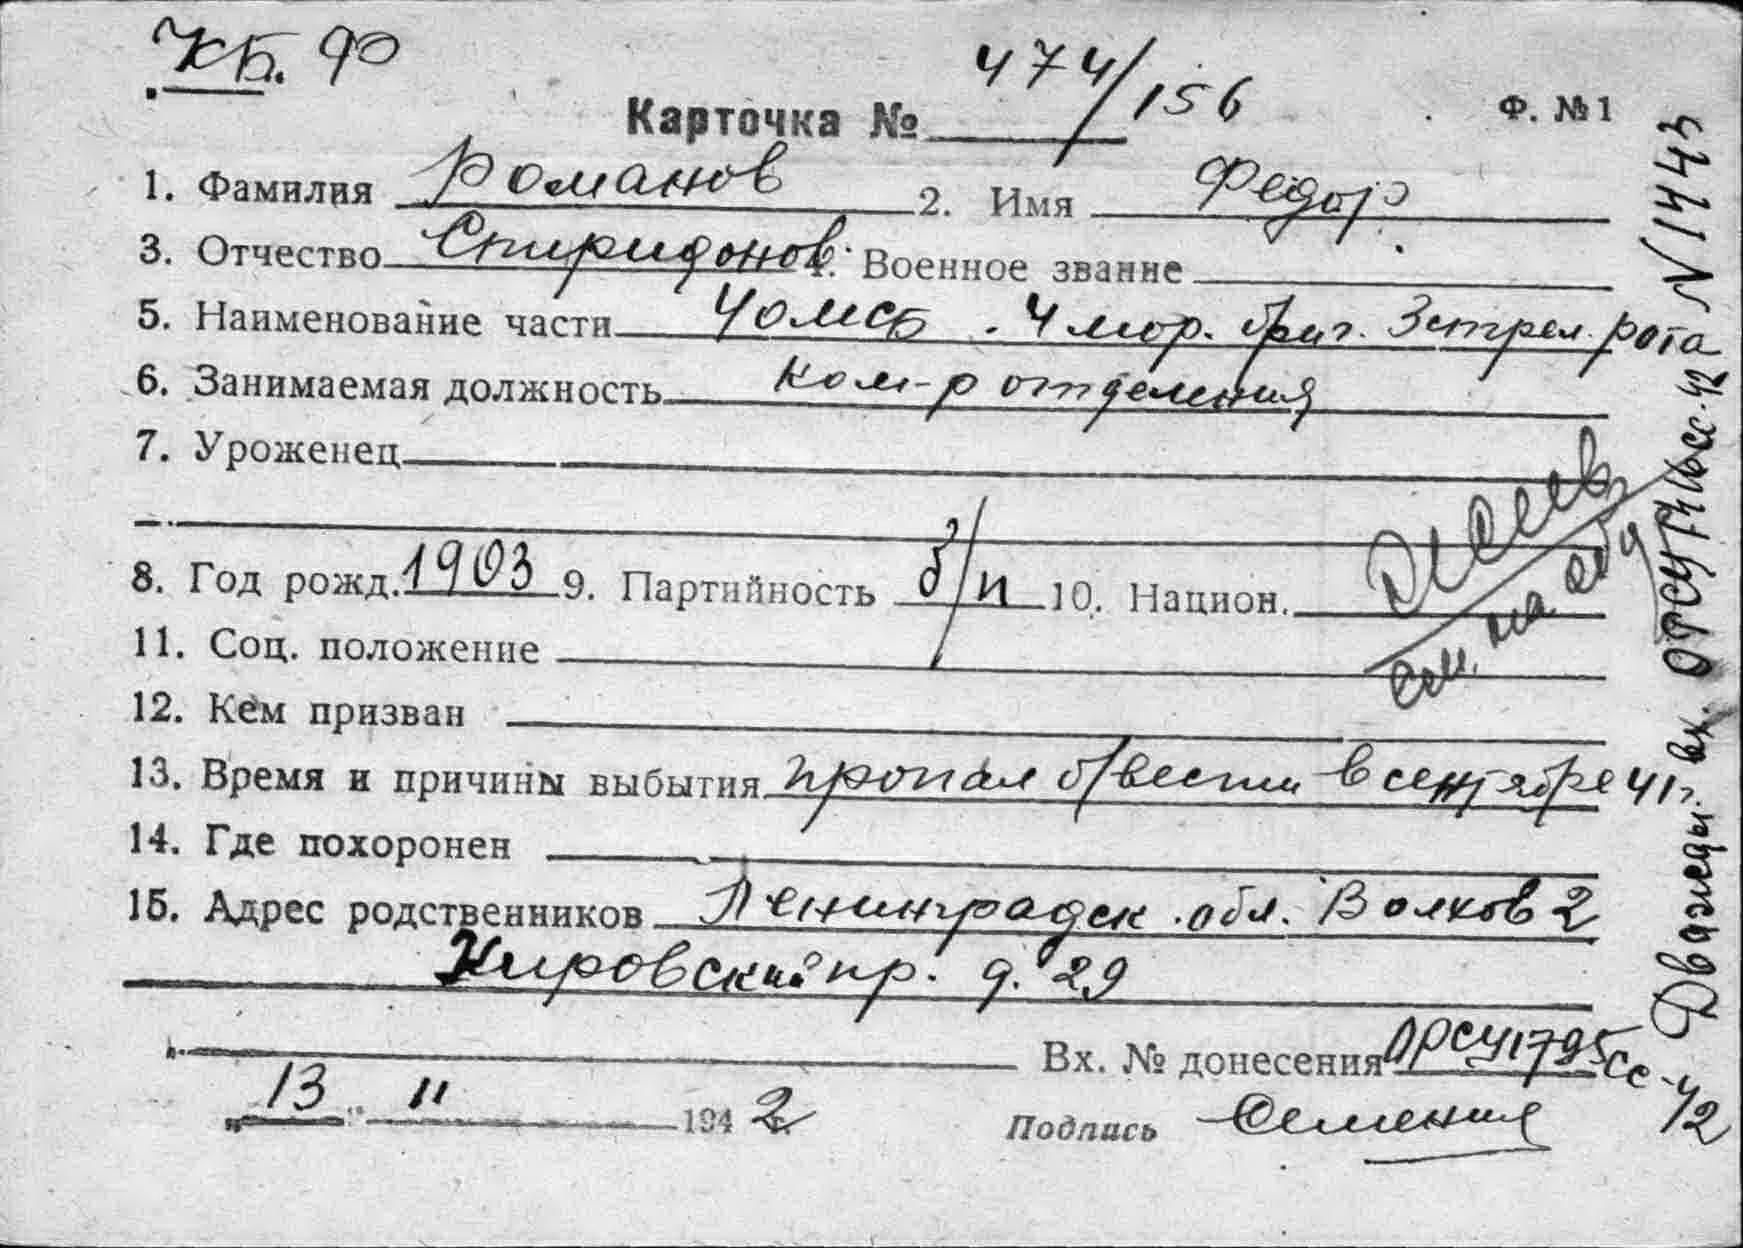 КБФ
Карточка № 474/156 Ф. №1
1. Фамилия Романов 2. Имя Федор
3. Отчество Спиридонов. 4. Военное звание
5. Наименование части 4 мор. бриг. 3 стрел. рота
6. Занимаемая должность ком-р отделения
7. Уроженец
8. Год рожд. 1903 9. Партийность б/п 10. Национ.
11. Соц. положение
12. Кем призван
13. Время и причины выбытия пропал б/вести в сентябре 41 г.
14. Где похоронен
15. Адрес родственников Ленинградск. обл. Волхов 2
Кировский пр. д. 29
Вх. № донесения ОРСУ 1795сс-42
"13" 11 1942 Подпись
см. на об
Дважды вх. ОРСУ 1416сс-42 N 1443